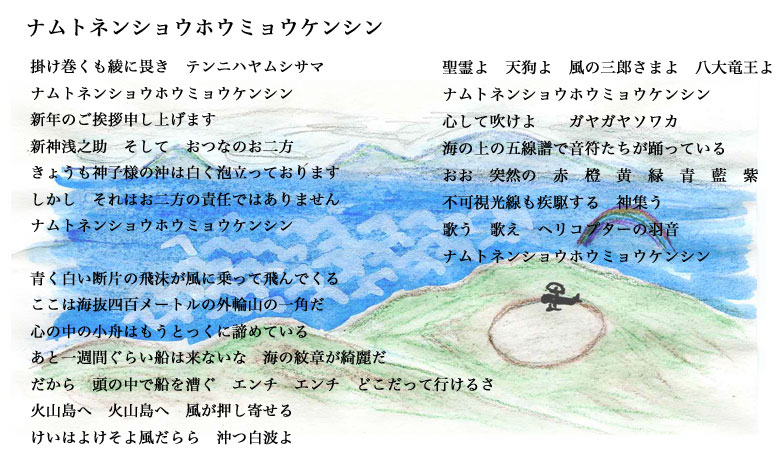 ナムトネンショウホウミョウケンシン
掛け巻くも綾に畏き　テンニハヤムシサマ
ナムトネンショウホウミョウケンシン
新年のご挨拶申し上げます
新神浅之助　そして　おつなのお二方
きょうも神子様の沖は白く泡立っております
しかし　それはお二方の責任ではありません
ナムトネンショウホウミョウケンシン
青く白い断片の飛沫が風に乗って飛んでくる
ここは海抜四百メートルの外輪山の一角だ
心の中の小舟はもうとっくに諦めている
あと一週間ぐらい船は来ないな　海の紋章が綺麗だ
だから　頭の中で船を漕ぐ　エンチ　エンチ　どこだって行けるさ
火山島へ　火山島へ　風が押し寄せる
けいはよけそよ風だらら　沖つ白波よ
聖霊よ　天狗よ　風の三郎さまよ　八大竜王よ
ナムトネンショウホウミョウケンシン
心して吹けよ　　ガヤガヤソワカ
海の上の五線譜で音符たちが踊っている
おお　突然の　赤　橙　黄　緑　青　藍　紫
不可視光線も疾駆する　神集う
歌う　歌え　ヘリコプターの羽音
ナムトネンショウホウミョウケンシン